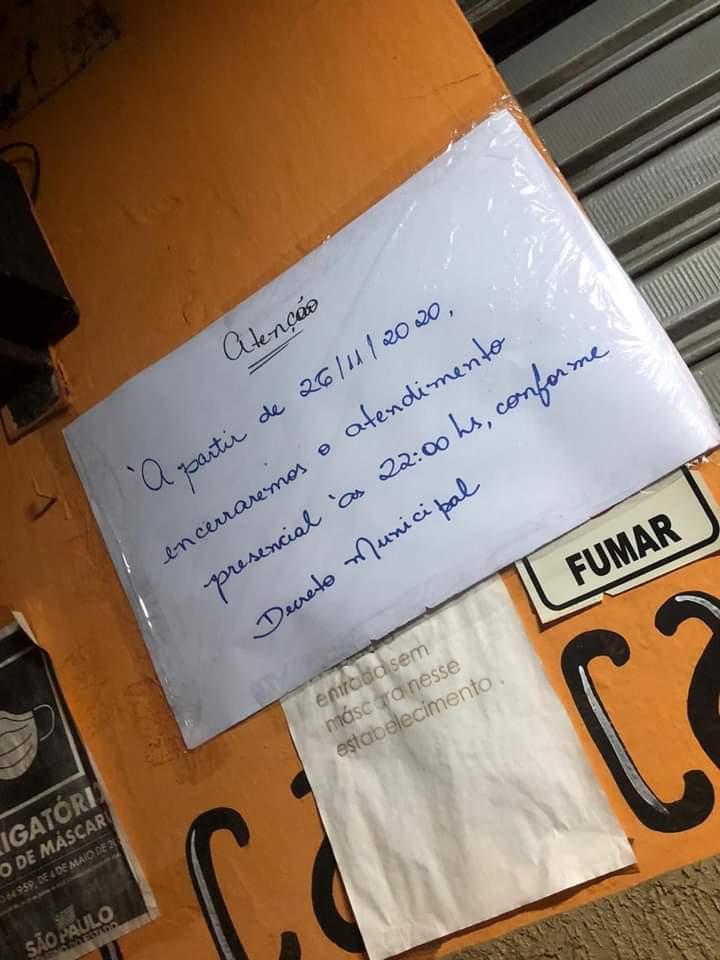 Atenção
A partir de 26/11/2020,
encerraremos o atendimento
presencial às 22:00 hs, conforme
Decreto Municipal
FUMAR
entrada sem
máscara nesse
estabelecimento.
RIGATÓRI
O DE MÁSCAR
64.959, DE 4 DE MAIO DE 20
SÃO PAULO
GOVERNO DO ESTADO
Ca
Ca